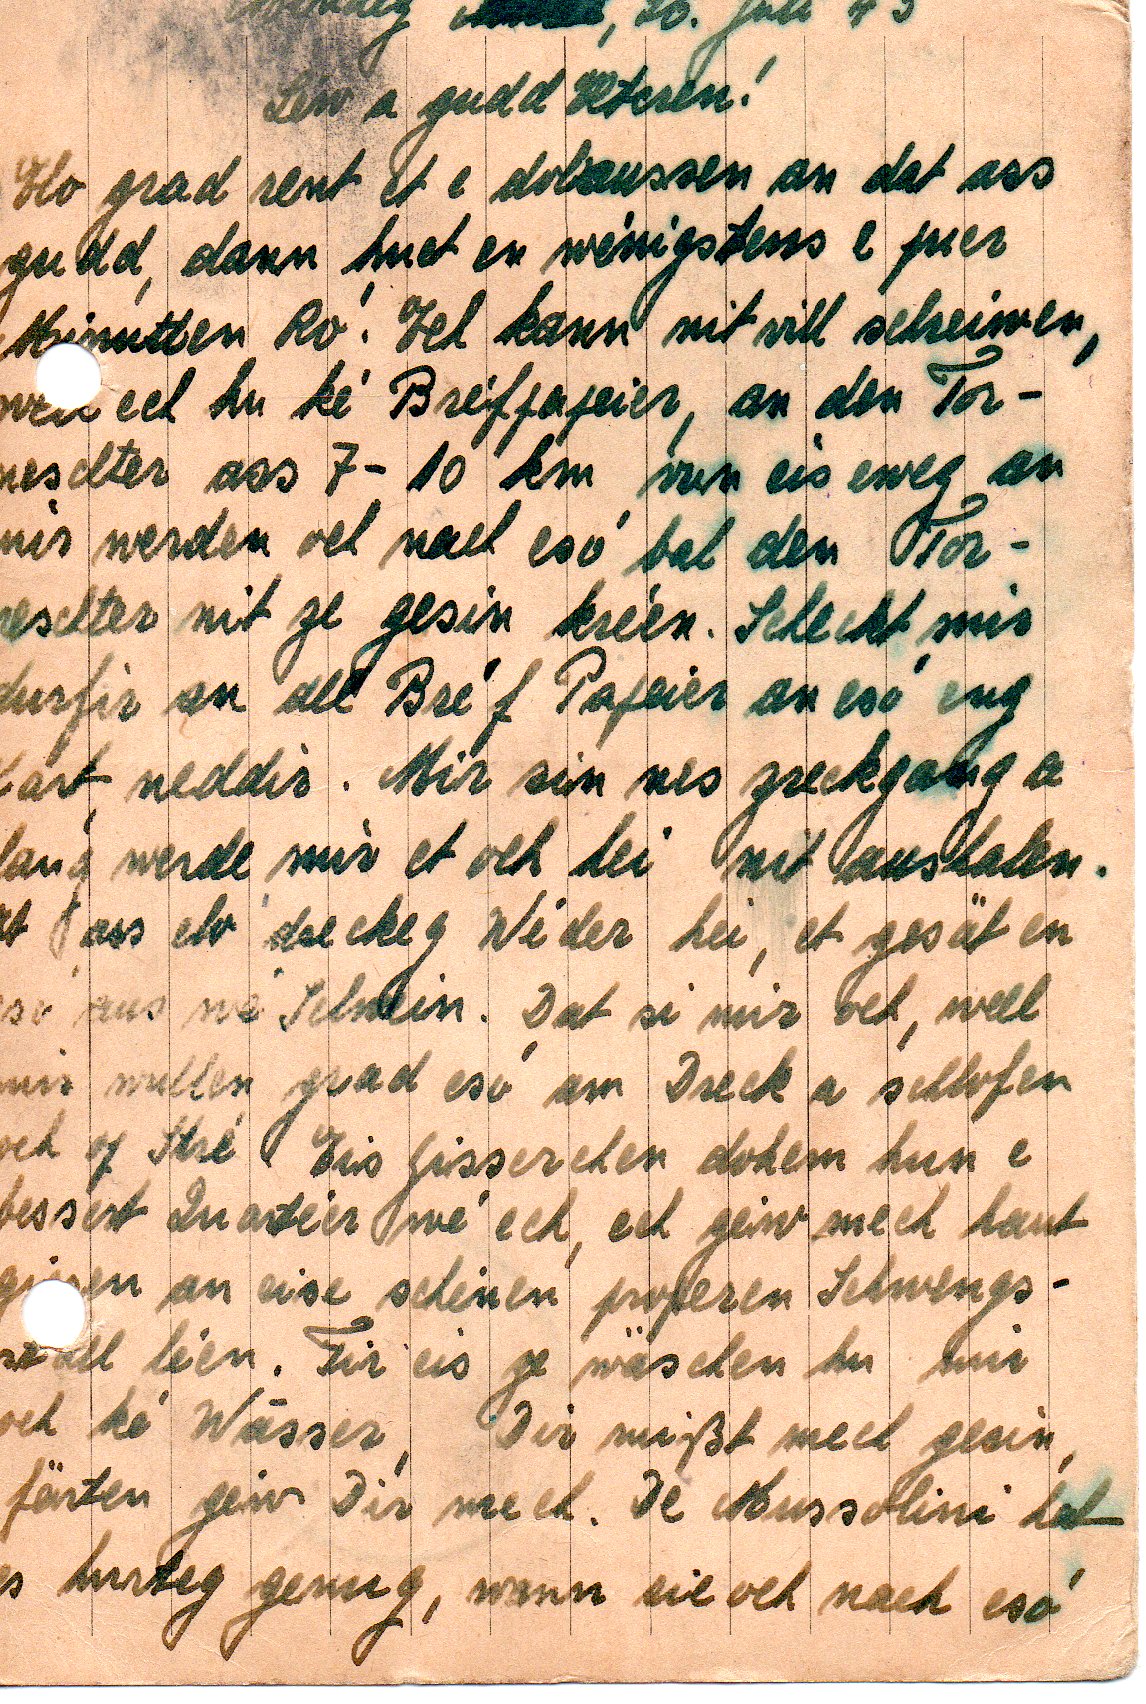 Méindeg, 26. Juli 43
Léiw a gudd Elteren!
Ho grad rent et e dobaussen an dat ass
gudd, dann huet en wénigstens e puer
Minutten Ró. Ech kann nit vill schreiwen,
well ech hu ké Bréifpapeier, an den Tor-
neschter ass 7-10 km vun eis eweg an
mir werden och nach esó bal den Tor-
neschter nit ze gesin kréien. Scheckt mir
durfir an all Bréf Papeier an esó eng
Kart neddir. Mir sin nes zreckgang a
lang werde mir et och hei nit aushalen.
Et ass elo dreckeg Wéder hei, et gesät en
esó aus wé Schwein. Dat si mir och, well
mir wullen grad esó am Dreck a schlofen
och op Stré. Eis Gisserchen dohem hun e
bessert Quartéier wé ech, ech geiw mech haut
gären an eise schéinen properen Schwengs-
stall léen. Fir eis ze wäschen hu mir
och ké Wässer, Dir mißt mech gesin,
färten geiw Dir mech. De Mussolini hat
es hurteg genug, wann sie och nach esó